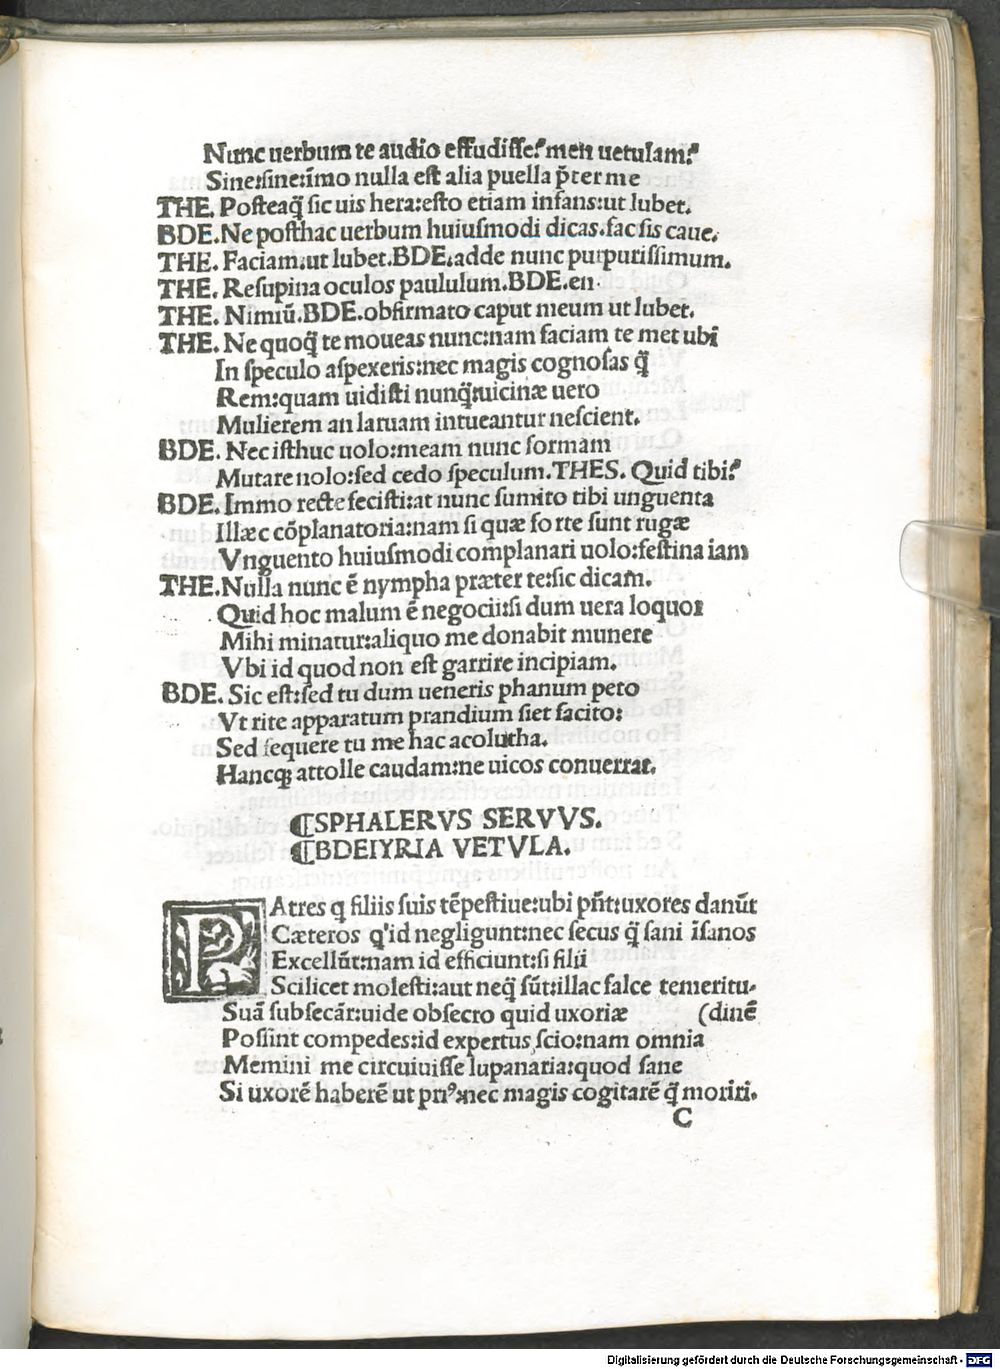 Nunc uerbum te audio effudisse? men uetulam?
Sine:sine:ĩmo nulla est alia puella p̃ter me
THE. Posteaq̃ sic uis hera:esto etiam infans:ut lubet.
BDE. Ne posthac uerbum huiusmodi dicas.fac sis caue.
THE. Faciam.ut lubet.BDE.adde nunc purpurissimum.
THE. Resupina oculos paululum.BDE.en.
THE. Nimiũ.BDE.obfirmato caput meum ut lubet.
THE. Ne quoq̃ te moueas nunc:nam faciam te met ubi
In speculo aspexeris:nec magis cognosas q̃
Rem:quam uidisti nunq̃:uicinæ uero
Mulierem an laruam intueantur nescient.
BDE. Nec isthuc uolo:meam nunc formam
Mutare nolo:sed cedo speculum.THES. Quid tibi?
BDE. Immo recte fecisti:at nunc sumito tibi unguenta
Illæc cõplanatoria:nam si quæ forte sunt rugæ
Vnguento huiusmodi complanari uolo:festina iam
THE. Nulla nunc ẽ nympha præter te:sic dicam.
Quid hoc malum ẽ negocii:si dum uera loquor
Mihi minatur:aliquo me donabit munere
Vbi id quod non est garrire incipiam.
BDE. Sic est:sed tu dum ueneris phanum peto
Vt rite apparatum prandium siet facito:
Sed sequere tu me hac acolutha.
Hancq; attolle caudam:ne uicos conuerrat.
⸿SPHALERVS SERVVS.
⸿BDEIYRIA VETVLA.
PAtres q filiis suis tẽpestiue:ubi pñt:uxores danũt
Cæteros q'id negligunt:nec secus q̃ sani ĩsanos
Excellũt:nam id efficiunt:si filii
Scilicet molesti:aut neq̃ sũt:illac falce temeritu-
Suã subsecãr:uide obsecro quid uxoriæ (dinẽ
Possint compedes:id expertus scio:nam omnia
Memini me circuiuisse lupanaria:quod sane
Si uxorẽ haberẽ ut priꝰ:nec magis cogitarẽ q̃ moriri.
C
Digitalisierung gefördert durch die Deutsche Forschungsgemeinschaft - DFG